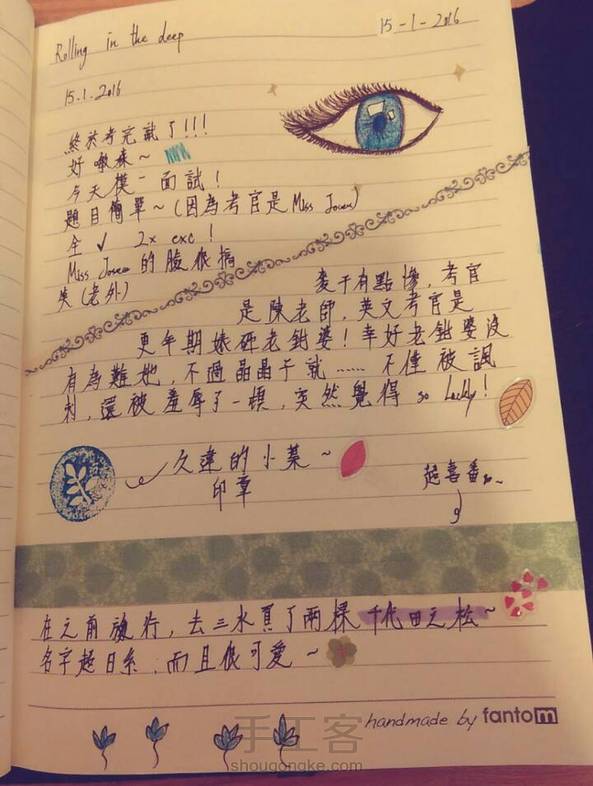 Rolling in the deep
15-1-2016
15.1.2016
終於考完試了!!!
好嗽森~
今天模一面試!
題目簡單~(因為考官是Miss Jones)
全 ✓ 2x exc!
Miss 的臉很搞
笑(老外)
麥干有點慘,考官
是陳老師,英文考官是
更年期嫉砸老鉗婆!幸好老鉗婆沒
有為難她,不過晶晶干就……不僅被諷
刺,還被羞辱了一頓,突然覺得 so Luckly!
久違的小葉~
印章
超喜番
在之前旅行,去三水買了兩棵千代田之松~
名字超日系,而且很可愛~
handmade by fantom
手工客
shougongke.com